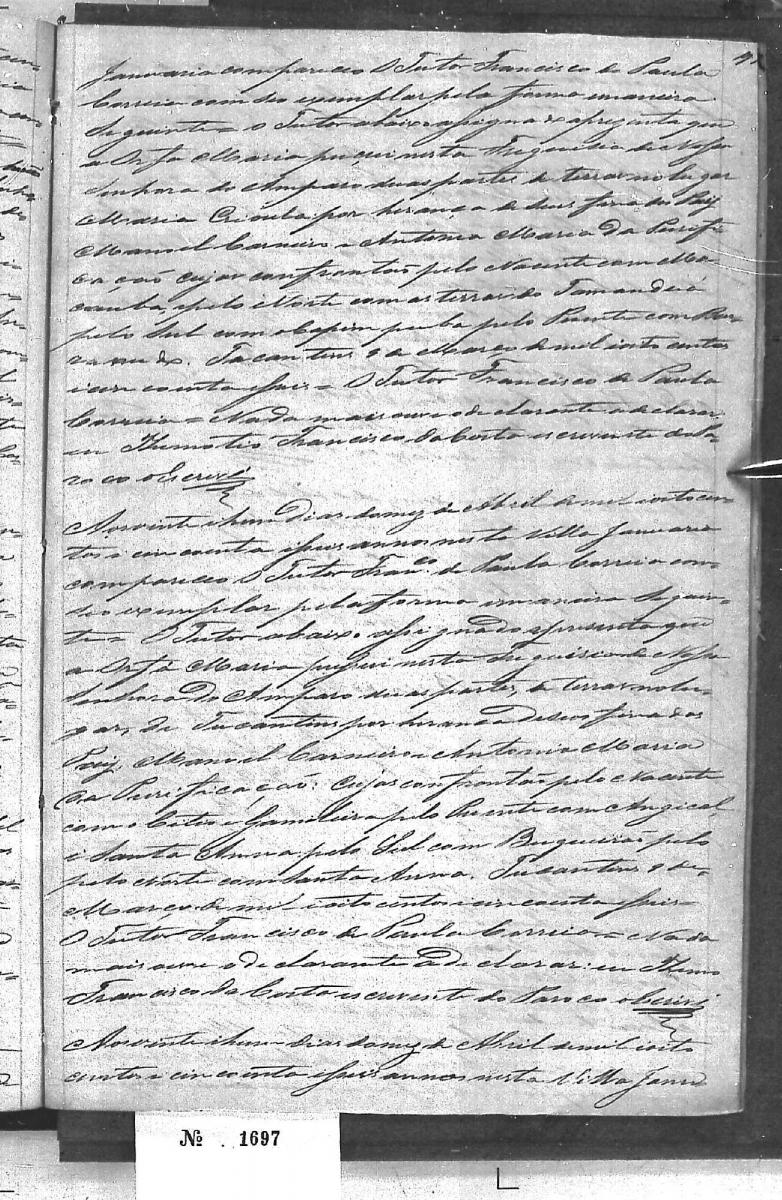 Januaria compareceo O Tutor Francisco de Paula
Correia com seo exemplar pela forma emaneira
Seguinte = O Tutor abaixo assignado aprezenta que
a Orfã Maria possui nesta Freguesia de Nossa
Senhora do Amparo duas partes de terras no lugar
Maria Crioula por herança de seus finados Pais
Manoel Carneiro e Antonia Maria da Purifi
cacaõ cujas confrontaõ pelo Nacente com Ma
cauba, e pelo Norte com as terras do Tamanduá
pelo Sul com o Capim puba pelo Puente com
Tucantins 9 de Março de mil oito centos
e cincoenta e seis = O Tutor Francisco de Paula
Correia = Nada mais ouve o declarante a declarar,
eu Themotio Francisco da Costa escrevente do Pa-
roco o escrevi
Aos vinte e hum dias do mez de Abril de mil oito cen
tos e cincoenta e seis annos nesta Villa Januaria
compareceo O Tutor Franco. de Paula Correia com
seo exemplar pela forma emaneira Seguin-
te = O Tutor abaixo assignado aprezenta que
a Orfã Maria possui nesta Freguisia de Nossa
Senhora do Amparo duas partes de terras no lu-
gar, de Tucantins por herança de seos finados
Pais, Manoel Carneiro e Antonia Maria
da Purificaçaõ: Cujas confrontaõ pelo Nacente
com o Gamileira pelo Puente com Angical
e Santa Anna pelo Sul com Buqueiraõ pelo
pelo Norte com Santa Anna. Tucantins 9 de
Março de mil oito centos e cincoenta e seis =
O Tutor Francisco de Paula Correia = Nada
mais ouve o declarante a declarar: eu Themo
Francisco da Costa escrevente do Paroco o escrevi
Aos vinte e hum dias do mez de Abril de mil oito
centos e cincoenta e seis annos nesta Villa Janua
Nº 1697